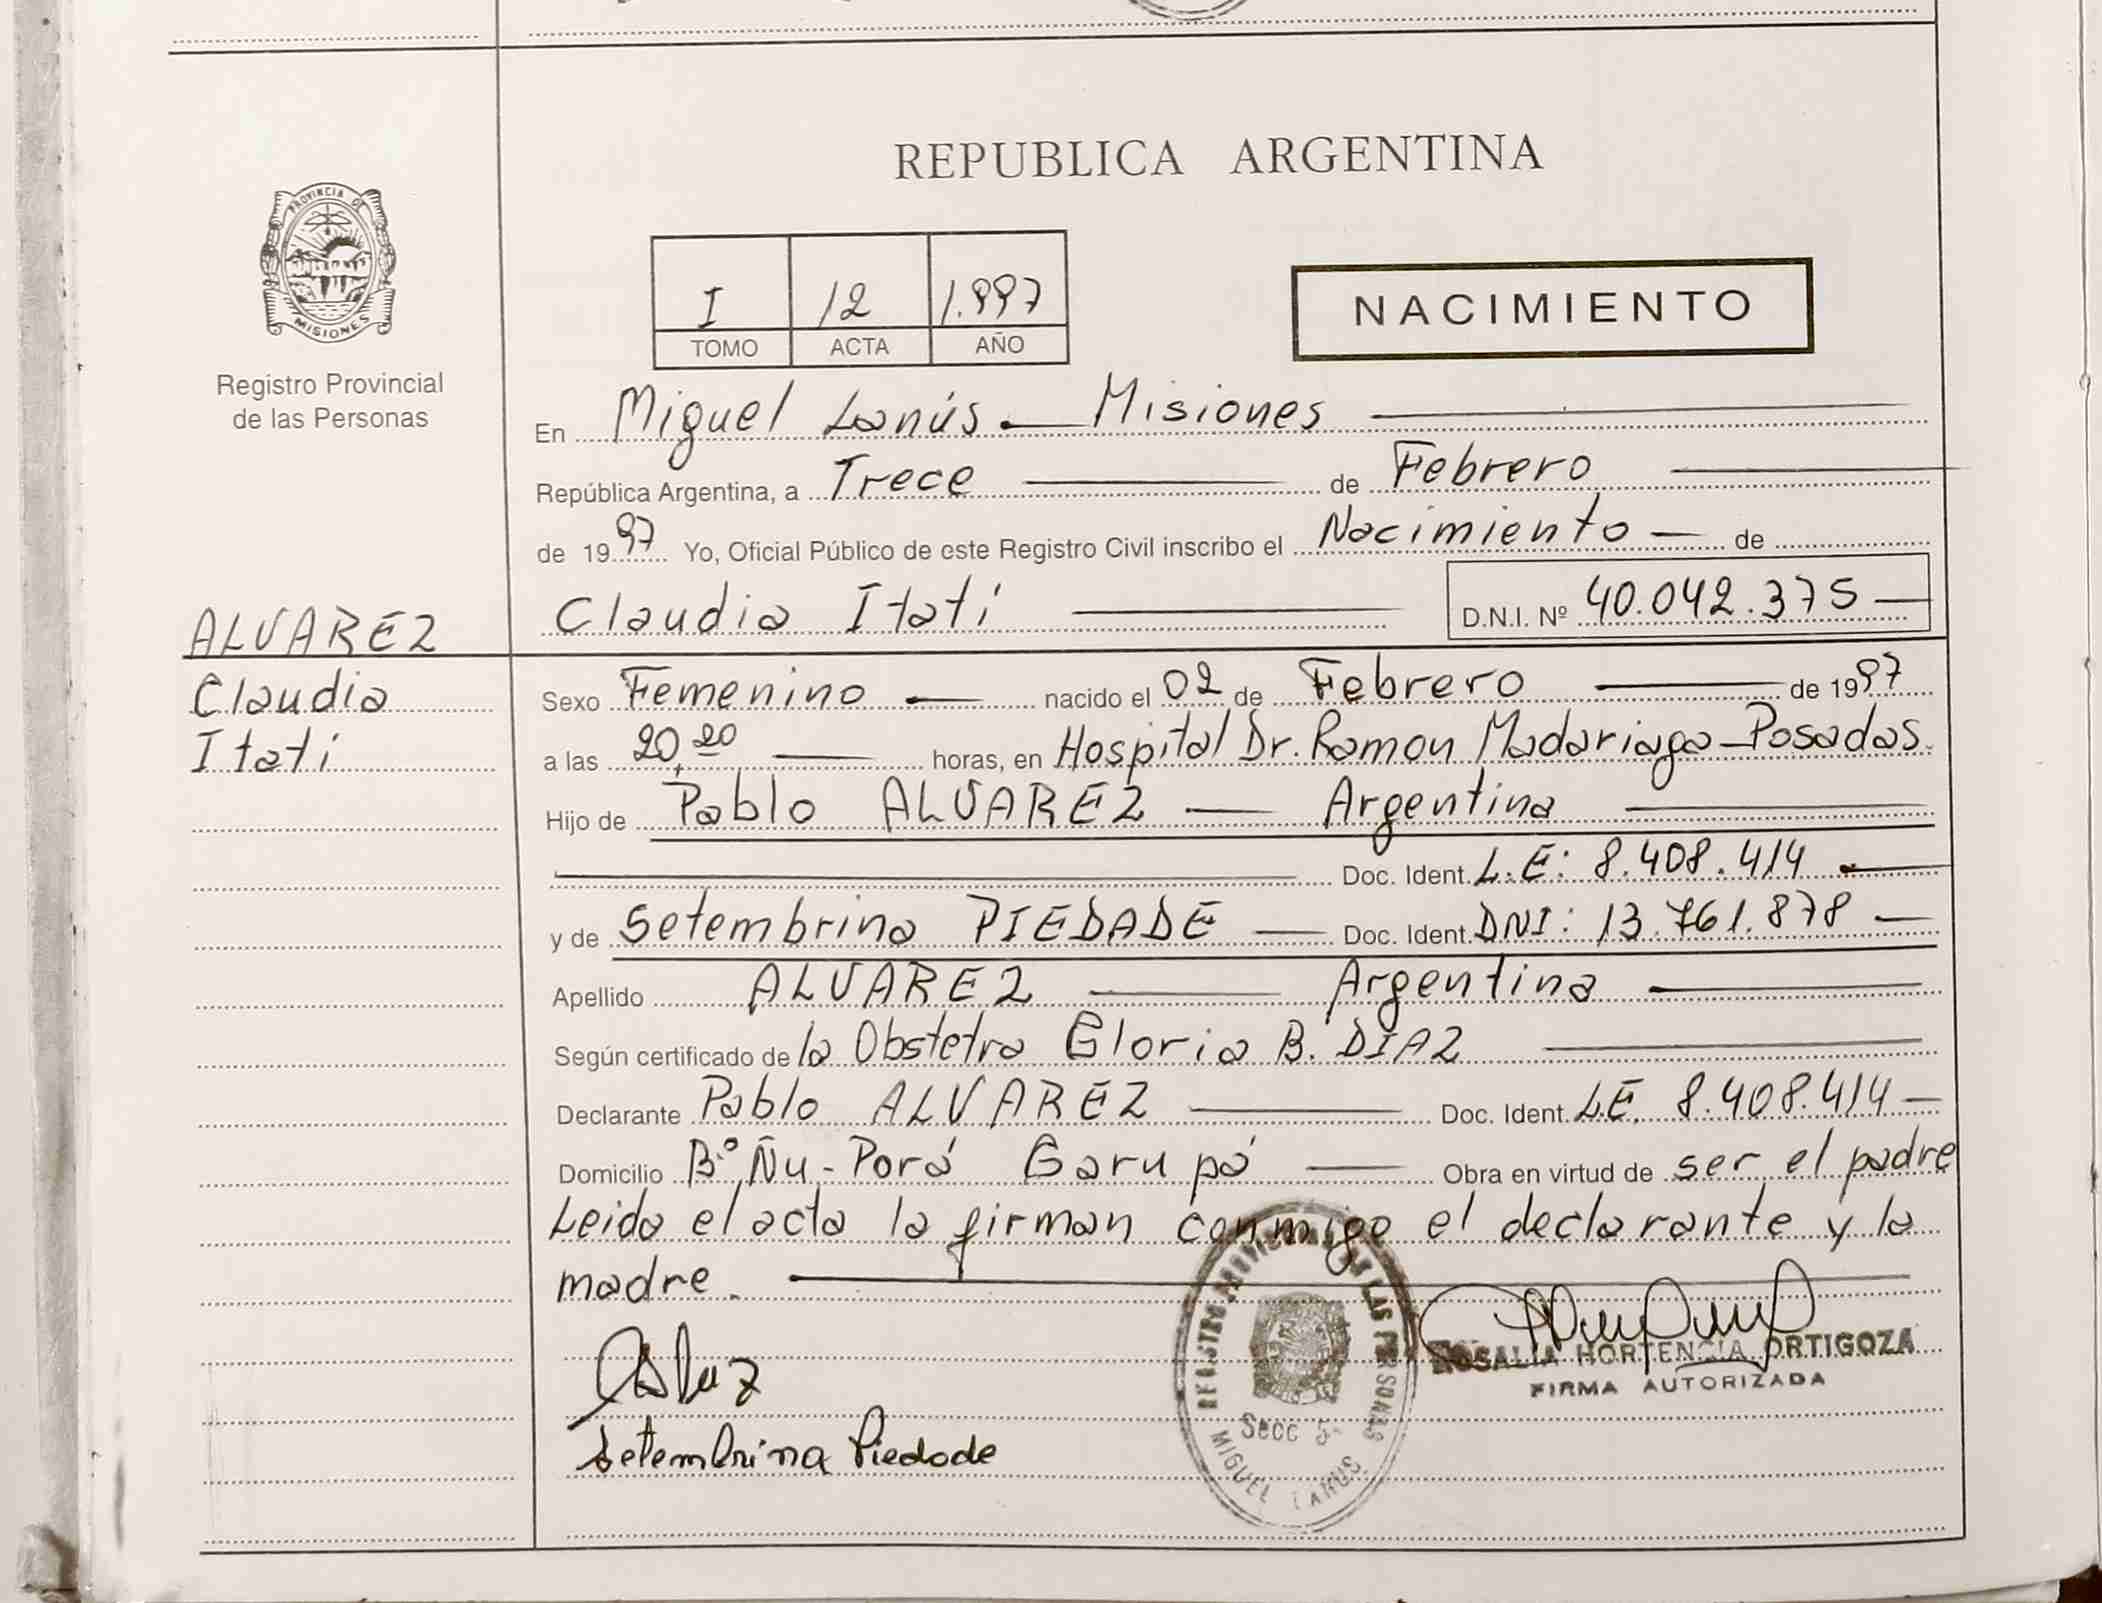 PROVINCIA DE
MISIONES
Registro Provincial
de las Personas
ALVAREZ
Claudia
Itatí
REPUBLICA ARGENTINA
I 12 1.997
TOMO ACTA AÑO
NACIMIENTO
En Miguel Lanús - Misiones
República Argentina, a Trece de Febrero
de 1997 Yo, Oficial Público de este Registro Civil inscribo el Nacimiento de
Claudia Itatí D.N.I. Nº 40.042.375
Sexo Femenino nacido el 02 de Febrero de 1997
a las 20,20 horas, en Hospital Dr. Ramon Madariaga - Posadas.
Hijo de Pablo ALVAREZ Argentina
Doc. Ident. L.E: 8.408.414
y de Setembrina PIEDADE Doc. Ident. DNI: 13.761.878
Apellido ALVAREZ Argentina
Según certificado de la Obstetra Gloria B. DIAZ
Declarante Pablo ALVAREZ Doc. Ident. L.E. 8.408.414
Domicilio Bº Ñu-Porá Garupá Obra en virtud de ser el padre
Leida el acta la firman conmigo el declarante y la
madre.
REGISTRO PROVINCIAL DE LAS PERSONAS
Secc 5
MIGUEL LANUS
ROSALIA HORTENCIA ORTIGOZA
FIRMA AUTORIZADA
Setembrina Piedade